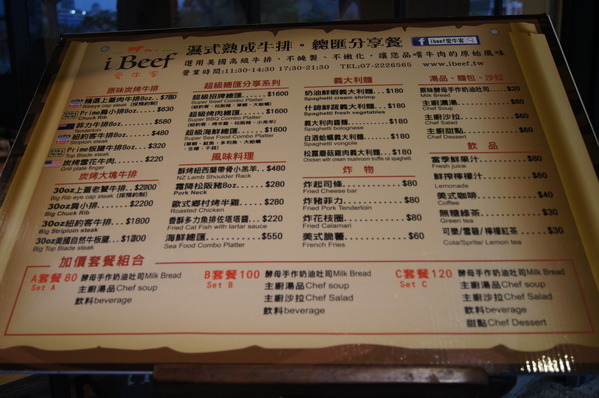 i.Beef
愛牛客
溫式熟成牛排。總匯分享餐
選用美國高級牛排、不醃製、不嫩化、讓您品嚐牛肉的原始風味
營業時間:11:30-14:30 17:30-21:30 TEL:07-2226565 www.ibeef.tw
f ibeef愛牛客
原味炭烤牛排
Ribeye cap steak
Prime肩小排8oz. $630
Chuck Rib
菲力牛排8oz. $580
Tenderloin
紐約客牛排8oz. $480
Striploin steak
Prime板腱牛排8oz. $320
Top Blade steak
炭烤雪花牛肉 $220
Grill plate finger
炭烤大塊牛排
30oz上蓋老饕牛排 $2800
Big Rib eye cap steak
30oz肩小排 $2200
Big Chuck Rib
30oz紐約客牛排 $1800
Big Striploin steak
30oz美國自然牛板腱 $1300
Big Top Blade steak
超級總匯分享系列
超級招牌總匯 $1600
Super Beef Combo Platter
超級烤肉總匯 $1000
Super BBQ Combo Platter
超級海鮮總匯 $1600
Super Sea Food Combo Platter
風味料理
酥烤紐西蘭帶骨小羔羊 $480
NZ Lamb Shoulder Rack
霜降松阪豬8oz $280
Pork Neck
歐式鄉村烤半雞 $280
Roasted Chicken
酥多力魚排佐塔塔醬 $220
Fried Cat Fish with tartar sauce
海鮮總匯 $550
Sea Food Combo Platter
義大利麵
奶油鮮蝦義大利麵 $180
Spaghetti shrimp
什錦鮮蔬義大利麵 $180
Spaghetti fresh vegetables
義大利肉醬麵 $180
Spaghetti bolognase
白酒蛤蠣義大利麵 $180
Spaghetti vongole
松露蘑菇雞肉義大利麵 $180
Chicken with cream mushroom truffle oil spaghetti
炸物
炸起司條 $80
Fried Cheese bar
炸豬菲力 $80
Fried Pork Tenderloin
炸花枝圈 $80
Fried Calamari
美式脆薯 $60
French Fries
湯品、麵包、沙拉
原味酵母手作奶油吐司 $20
Milk Bread
主廚濃湯 $60
Chef Soup
主廚沙拉 $60
Chef Salad
主廚甜點 $60
Chef Dessert
飲品
當季鮮果汁 $80
Fresh juice
鮮搾檸檬汁 $60
Lemonade
美式咖啡 $40
Coffee
無糖綠茶 $30
Green tea
可樂/雪碧/檸檬紅茶 $30
Cola/Sprite/Lemon tea
加價套餐組合
A套餐 80 酵母手作奶油吐司Milk Bread
Set A 主廚湯品Chef soup
飲料beverage
B套餐 100 酵母手作奶油吐司Milk Bread
Set B 主廚湯品Chef soup
主廚沙拉Chef Salad
飲料beverage
C套餐 120 酵母手作奶油吐司Milk Bread
Set C 主廚湯品Chef soup
主廚沙拉Chef Salad
飲料beverage
甜點Chef Dessert